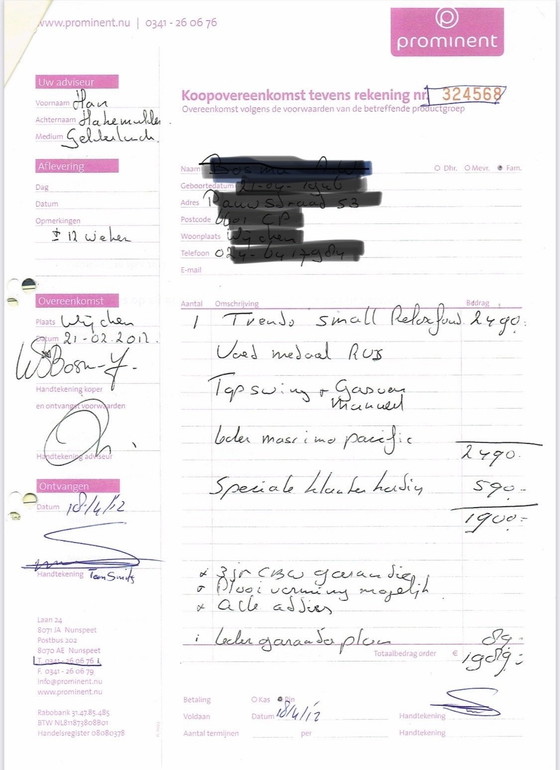 www.prominent.nu | 0341 - 26 06 76
prominent
Koopovereenkomst tevens rekening nr. 324568
Overeenkomst volgens de voorwaarden van de betreffende productgroep
Uw adviseur
Voornaam Han
Achternaam
Medium Gelderland.
Aflevering
Dag
Datum
Opmerkingen
± 12 weken
Naam
O Dhr. O Mevr. Fam.
Geboortedatum
Adres
Postcode
Woonplaats
Telefoon
E-mail
Overeenkomst
Plaats Wijchen
Datum 21-02-2012.
Handtekening koper
en ontvangst voorwaarden
Handtekening adviseur
Ontvangen
Datum 18/4/12
Handtekening
Aantal Omschrijving Bedrag
1 Trendo small Relaxfau. 2490.-
Voet medaal RVS
Topswing + Gasveer
Manueel
leder massimo pacific
2490.-
Speciale klanten korting 590.-
1900.-
x 3jr CBW garantie
o Plooivorming mogelijk
x Alle advies
1 leder garantie plan 89.-
Totaalbedrag order € 1989.-
Betaling O Kas Pin
Voldaan Datum 18/4/12 Handtekening
Aantal termijnen per Handtekening
Laan 24
8071 JA Nunspeet
Postbus 202
8070 AE Nunspeet
T. 0341 - 26 06 76
F. 0341 - 26 06 79
info@prominent.nu
www.prominent.nu
Rabobank 31.47.85.485
BTW NL811873808B01
Handelsregister 08080578